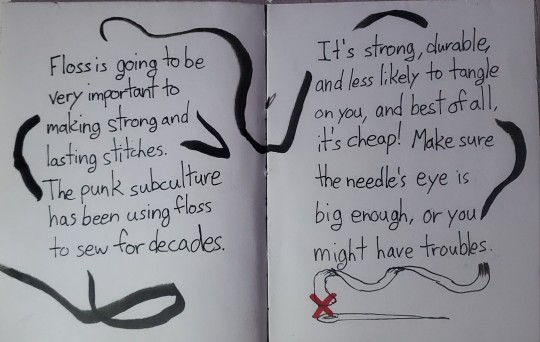 Floss is going to be
very important to
making strong and
lasting stitches.
The punk subculture
has been using floss
to sew for decades.
It's strong, durable,
and less likely to tangle
on you, and best of all,
it's cheap! Make sure
the needle's eye is
big enough, or you
might have troubles.